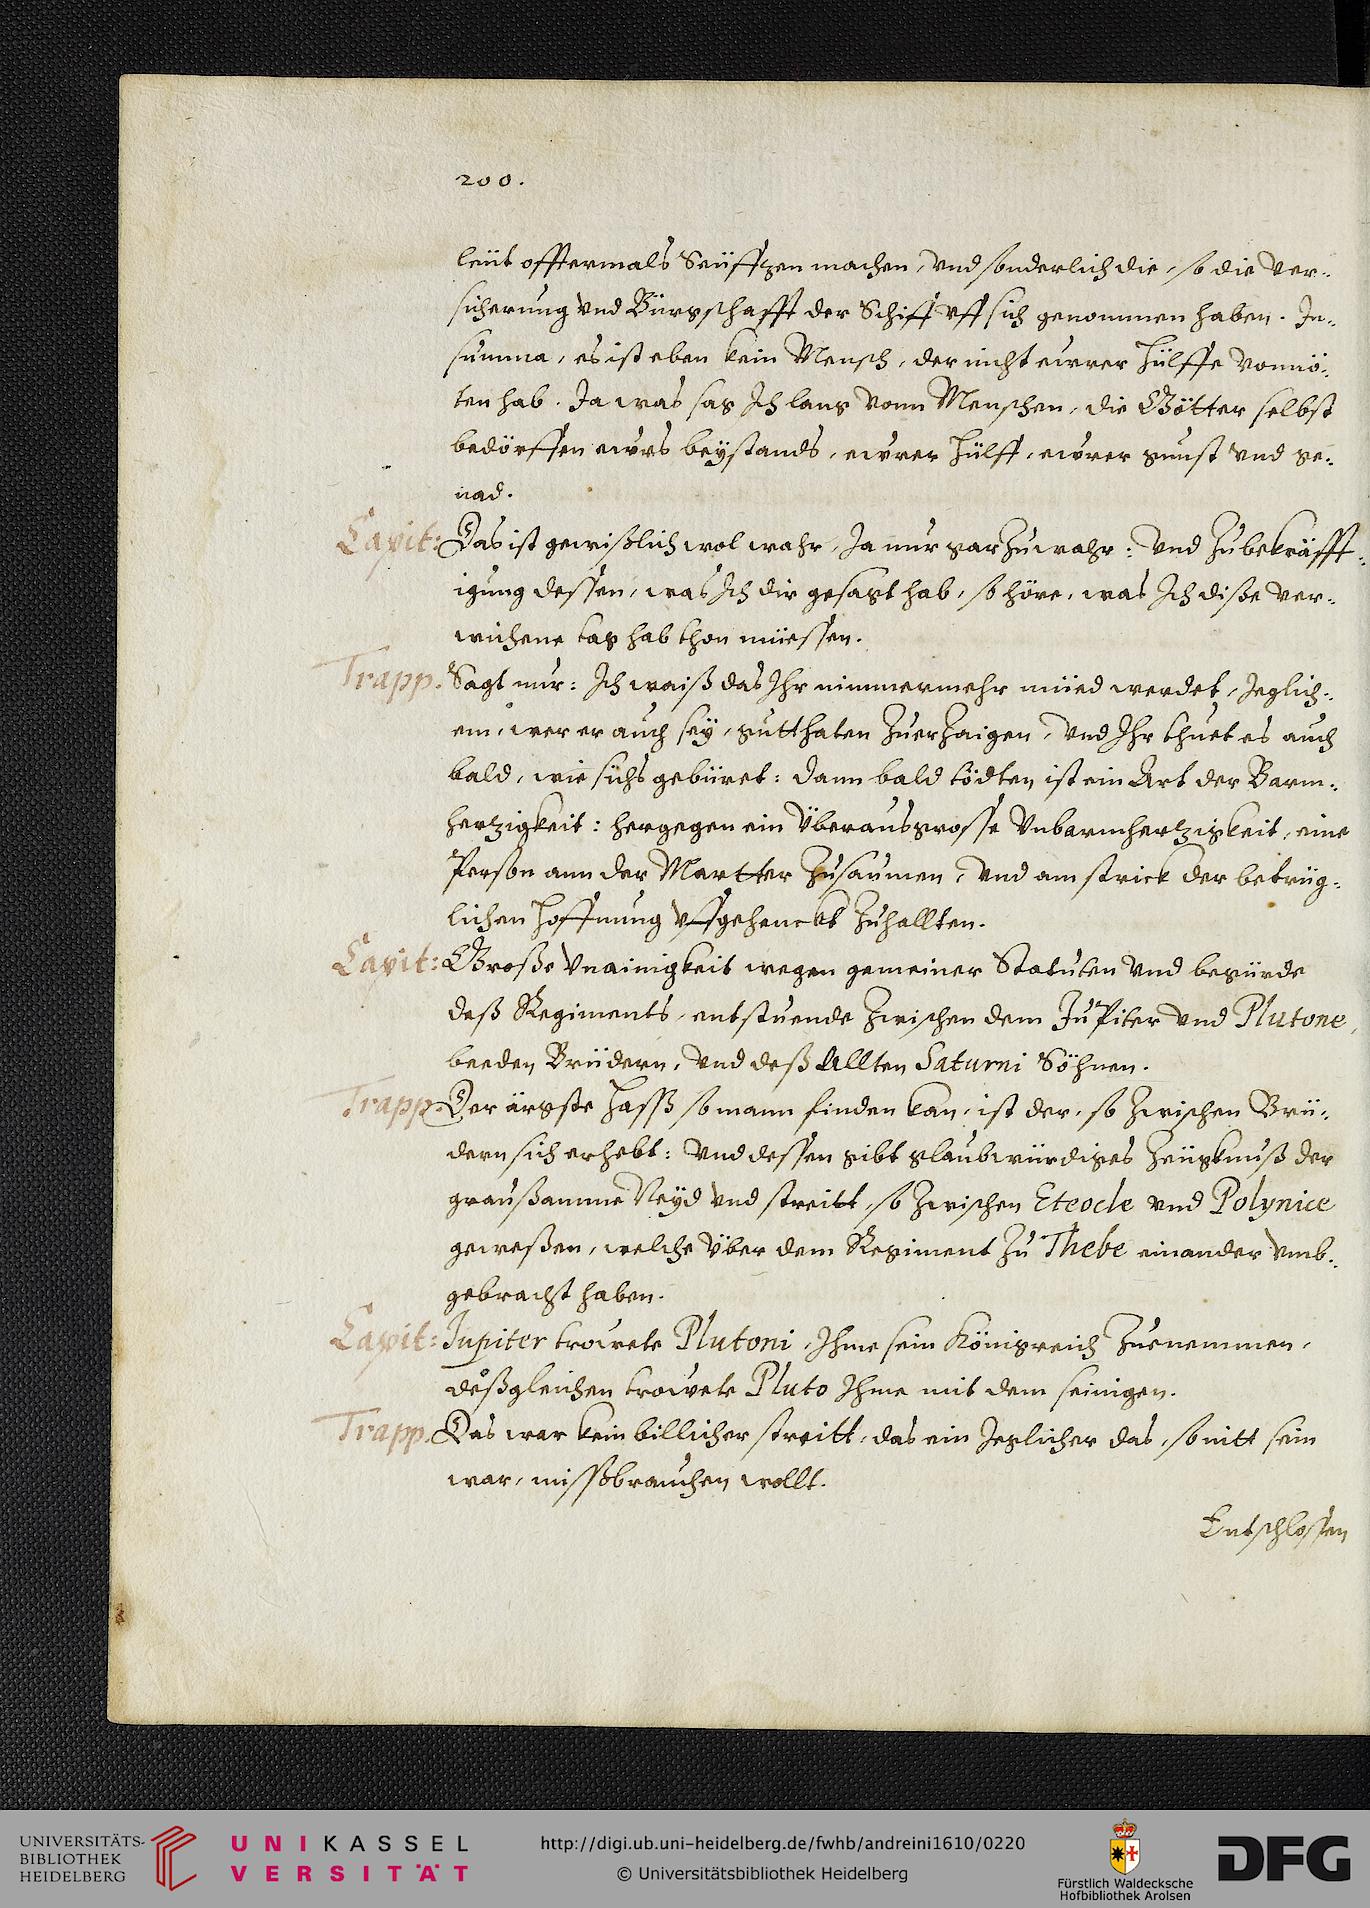 200.
leüt offtermals Seüffzen machen, vnd sonderlich die, so die ver-
sicherung vnd Bürgschafft der Schiff vff sich genommen haben. In-
summa, es ist eben kein Mensch, der nicht ewrer Hülffe vonnö-
ten hab. Ja was sag Ich lang vonn Menschen, die Götter selbst
bedörffen ewrs beÿstands, ewrer Hülff, ewrer gunst vnd ge-
nad.
Capit: Das ist gewißlich wol wahr, Ja nur gar zuwahr: vnd zu bekräfft-
igung dessen, was Ich dir gesagt hab, so höre, was Ich diße ver-
wichene tag hab thon müessen.
Trapp. Sagt nur: Ich waiß das Ihr nimmermehr müed werdet, Jeglich-
em, wer er auch seÿ, gutthaten zuerzaigen, vnd Ihr thuet es auch
bald, wie sichs gebüret: dann bald tödten ist ein Art der Barm-
hertzigkeit: hergegen ein überausgrosse vnbarmhertzigkeit, eine
Person ann der Martter zusaumen, vnd am strick der betrüg-
lichen Hoffnung vffgehenckt zuhallten.
Capit: Große vnainigkeit wegen gemeiner Statuten vnd begürde
deß Regiments, entstuende zwischen dem JuPiter vnd Plutone,
beeden Brüdern, vnd deß Allten Saturni Söhnen.
Trapp. Der ärgste Hass so mann finden kan, ist der, so zwischen Brü-
dern sich erhebt: vnd dessen gibt glaubwürdiges zeügknuß der
graußamme Neÿd vnd streitt, so zwischen Eteocle vnd Polynice
geweßen, welche über dem Regiment zu Thebe einander vmb-
gebracht haben.
Capit: Jupiter trowete Plutoni, Ihme sein Königreich zuenemmen,
deßgleichen trowete Pluto Ihme mit dem seinigen.
Trapp. Das war kein billicher streitt, das ein Jeglicher das, so nitt sein
war, missßbrauchen wollt.
Entschlossen
UNIVERSITÄTS-
BIBLIOTHEK
HEIDELBERG
UNIKASSEL
VERSITÄT
http://digi.ub.uni-heidelberg.de/fwhb/andreini1610/0220
© Universitätsbibliothek Heidelberg
Fürstlich Waldecksche
Hofbibliothek Arolsen
DFG